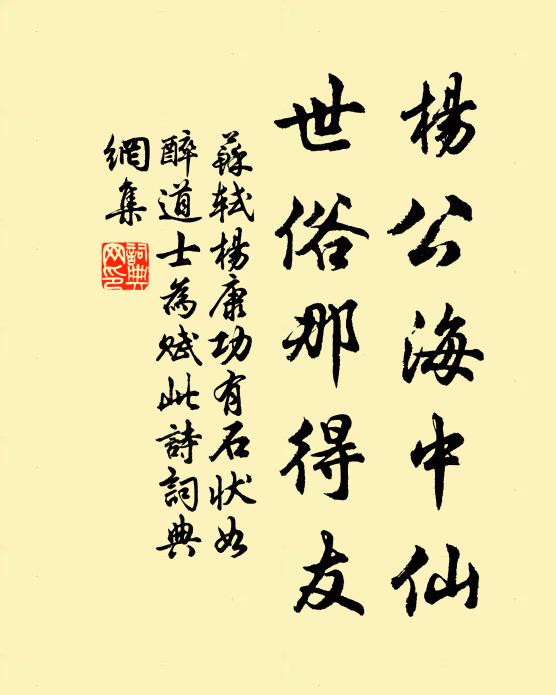 楊公海中仙
世俗那得友
蘇軾楊康功有石狀如
醉道士為賦此詩詞典
網集
詞典
网印